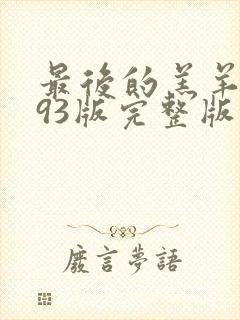 最後的羔羊
93版完整版
廢言夢語